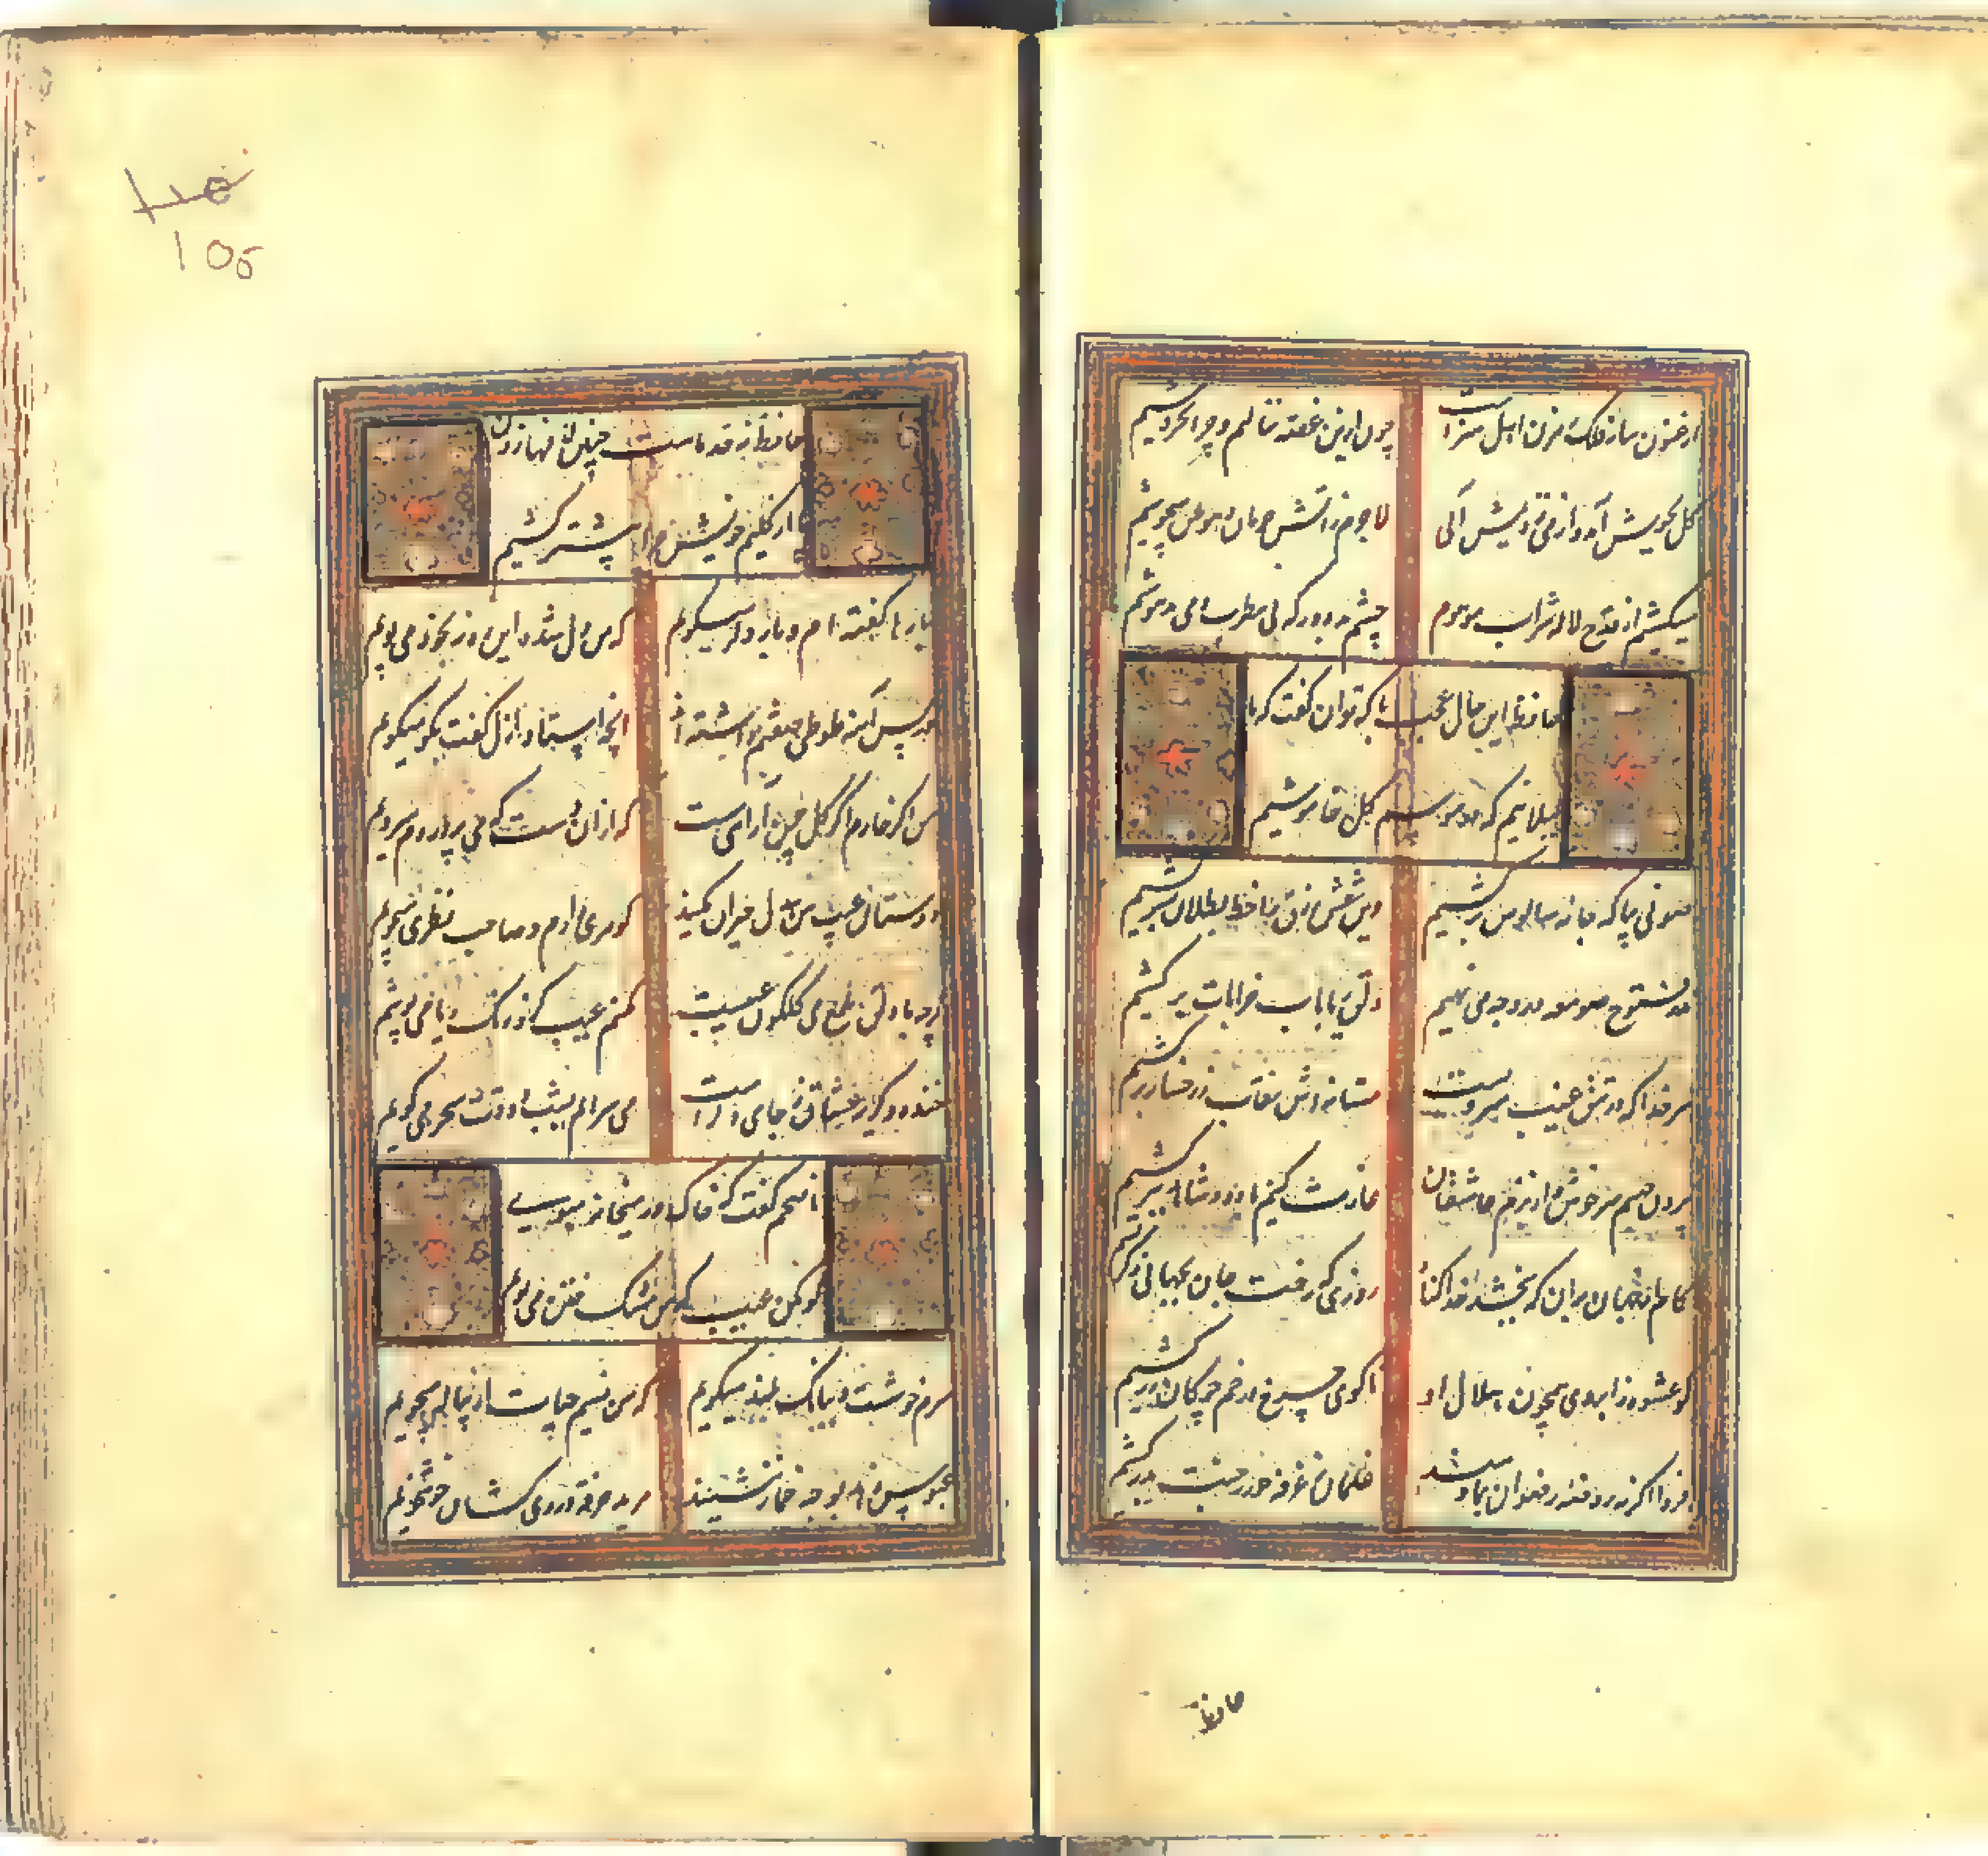 ارغنون ساز فلک رهزن اهل هنرست
چون ازین غصه ننالیم و چرا نخروشیم
گل بجوش آمد و از می نزدیمش آبی
لاجرم زاتش حرمان و هوس میجوشیم
میکشیم از قدح لاله شراب موهوم
چشم بد دور که بی مطرب و می مدهوشیم
حافظ این حال عجب با که توان گفت که ما
بلبلانیم که در موسم گل خاموشیم
صوفی بیا که جامه سالوس برکشیم
وین نقش زرق را خط بطلان بسر کشیم
نذر و فتوح صومعه در وجه می نهیم
دلق ریا بآب خرابات برکشیم
سر خدا که در تتق غیب منزویست
مستانه‌اش نقاب ز رخسار برکشیم
بیرون جهیم سرخوش و از بزم عاشقان
غارت کنیم باده و شاهد ببر کشیم
کام از جهان بران که ببخشد خدا گناه
روزی که رخت جان بجهانی دگر کشیم
کو عشوه ز ابروی همچون هلال او
تا گوی چرخ در خم چوگان زر کشیم
فردا اگر نه روضه رضوان بما دهند
غلمان ز غرفه حور ز جنت بدر کشیم
حافظ
۱۰۵
حافظ نه حد ماست چنین لافها زدن
از گلیم خویش چرا پیشتر کشیم
بارها گفته‌ام و بار دگر میگویم
که من دل شده این ره نه بخود می پویم
در پس آینه طوطی صفتم داشته‌اند
آنچه استاد ازل گفت بگو میگویم
من اگر خارم اگر گل چمن آرای هست
که از آن دست که می پروردم میرویم
دوستان عیب من بیدل حیران مکنید
گوهری دارم و صاحب نظری میجویم
گرچه با دلق ملمع می گلگون عیبست
مکنم عیب کزو رنگ ریا می شویم
خنده و گریه عشاق ز جای دگر است
می سرایم بشب و وقت سحر می مویم
ناصحم گفت که خاک در میخانه مبوی
گو مکن عیب که من مشک ختن می بویم
سرم خوشست و ببانگ بلند میگویم
که من نسیم حیات از پیاله میجویم
عبوس زهد بوجه خمار ننشیند
مرید خرقه دردی کشان خوشخویم